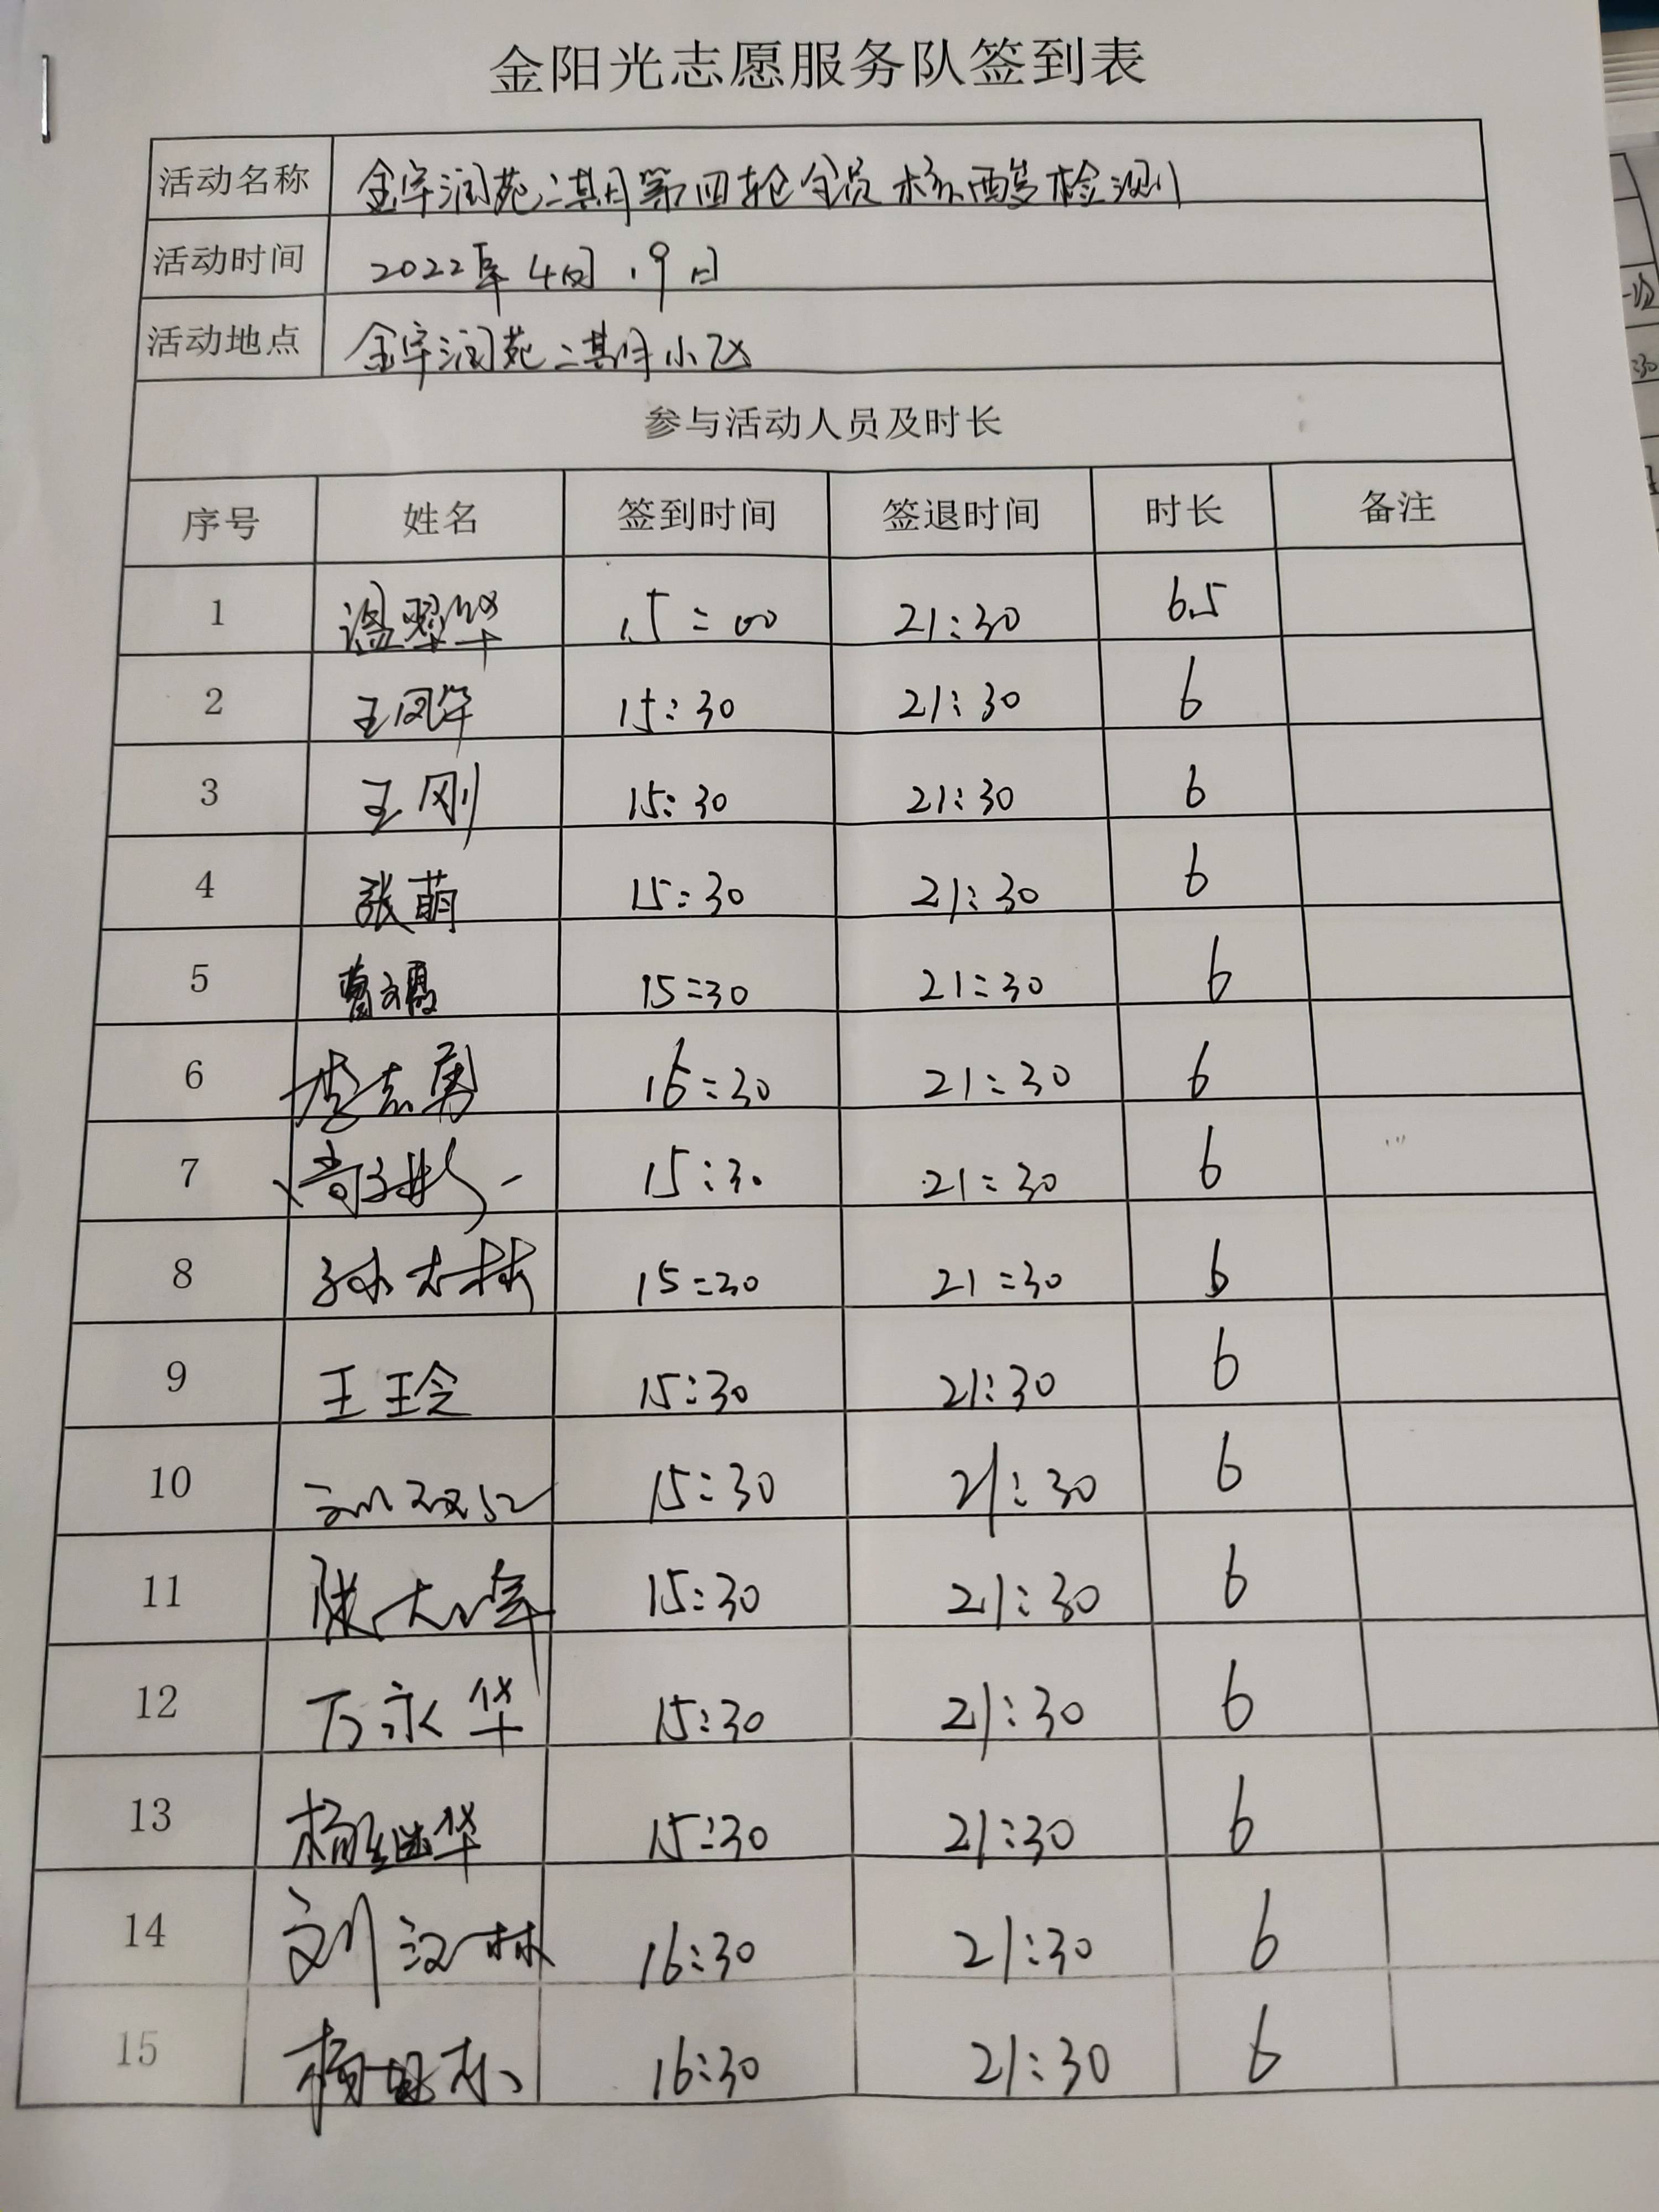 金阳光志愿服务队签到表
活动名称 金宇润苑二期第四轮全员核酸检测
活动时间 2022年4月19日
活动地点 金宇润苑二期小区
参与活动人员及时长
序号 姓名 签到时间 签退时间 时长 备注
1 温翠华 15:00 21:30 6.5
2 王凤华 15:30 21:30 6
3 王刚 15:30 21:30 6
4 张萌 15:30 21:30 6
5 15:30 21:30 6
6 李志勇 16:30 21:30 6
7 15:30 21:30 6
8 孙大林 15:30 21:30 6
9 王玲 15:30 21:30 6
10 15:30 21:30 6
11 15:30 21:30 6
12 万永华 15:30 21:30 6
13 杨继华 15:30 21:30 6
14 刘汉林 16:30 21:30 6
15 16:30 21:30 6